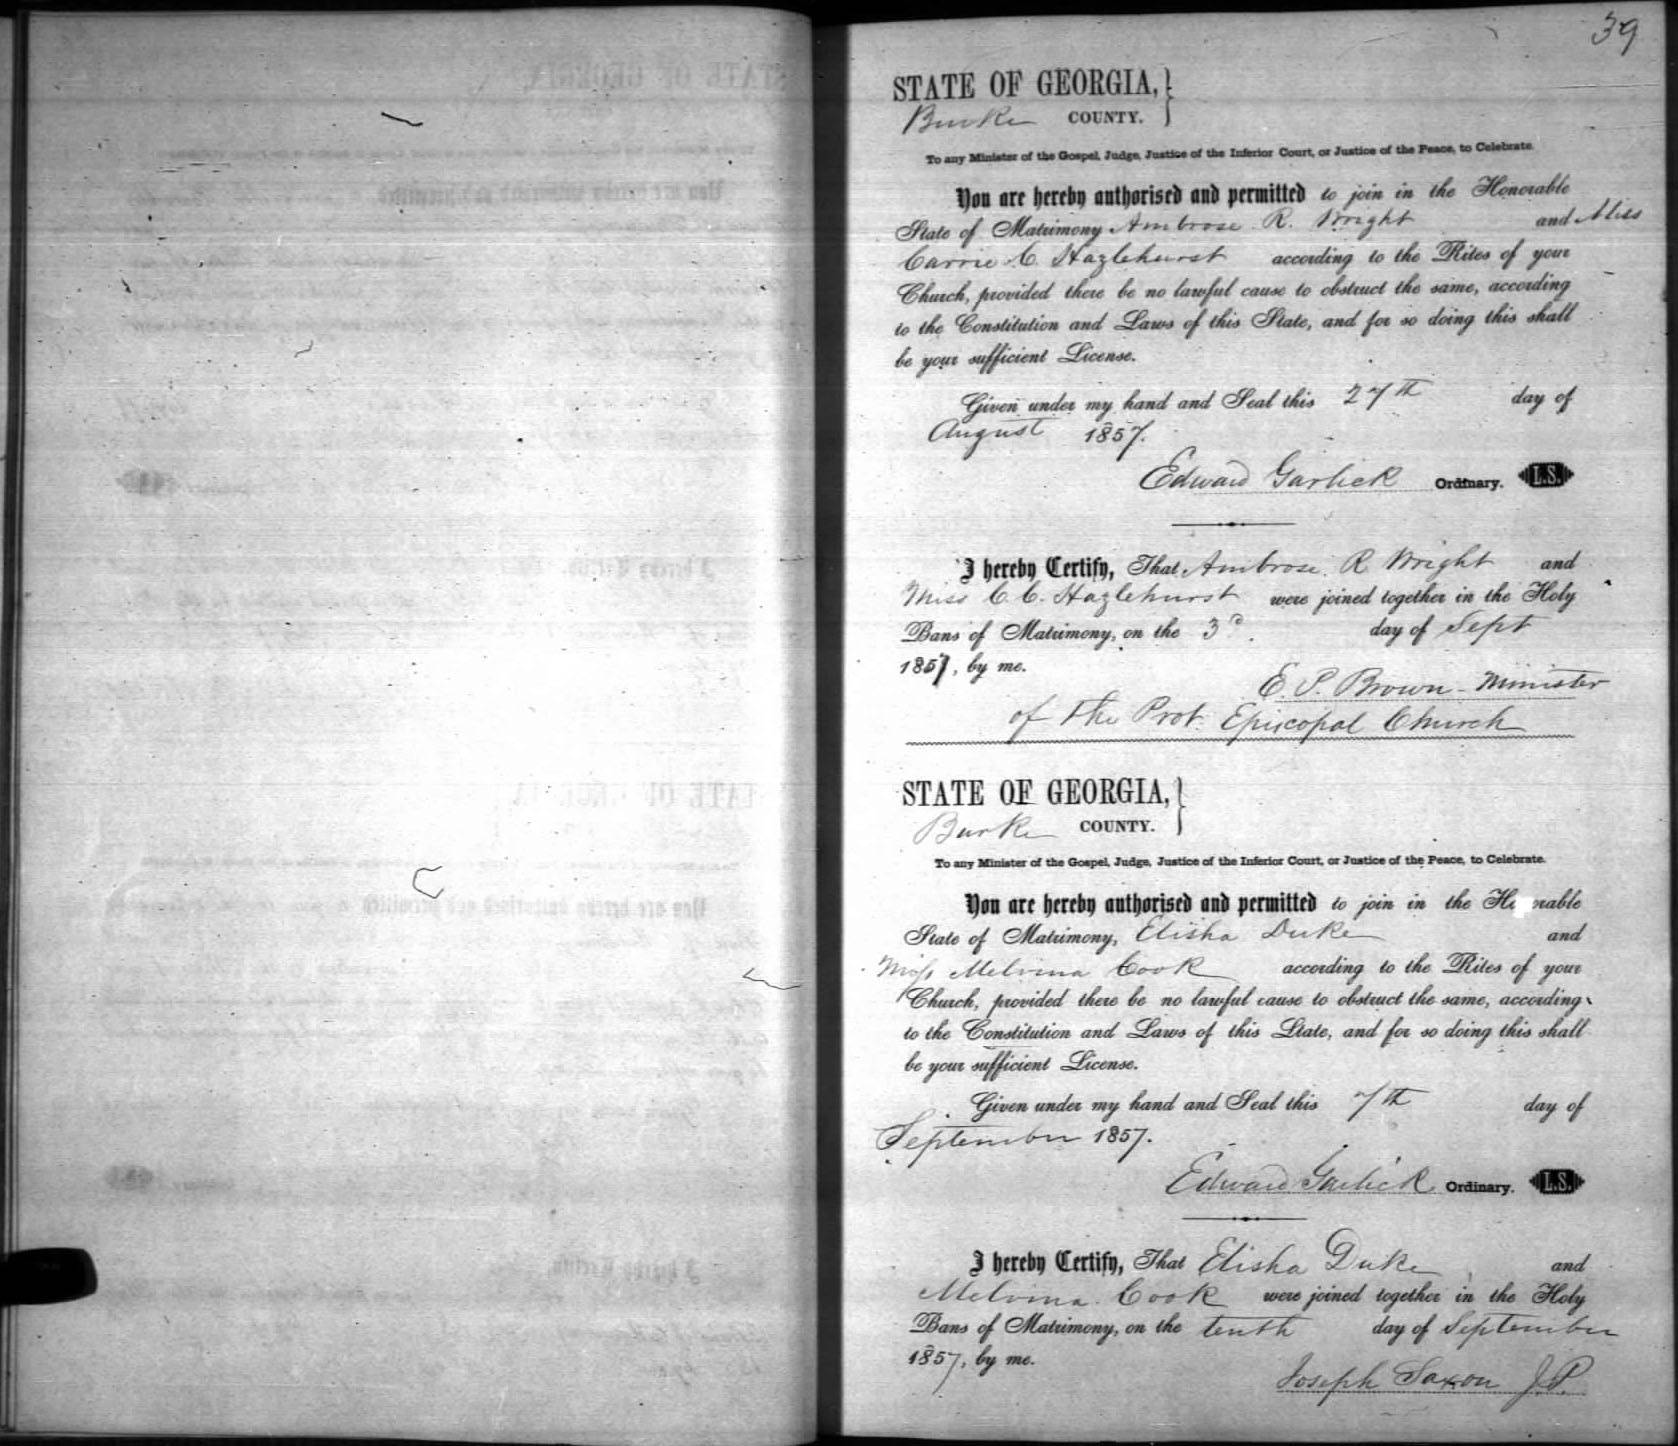 39
STATE OF GEORGIA,
Burke COUNTY.
To any Minister of the Gospel, Judge, Justice of the Inferior Court, or Justice of the Peace, to Celebrate.
You are hereby authorised and permitted to join in the Honorable
State of Matrimony Ambrose R. Wright and Miss
Carrie C. Hazlehurst according to the Rites of your
Church, provided there be no lawful cause to obstruct the same, according
to the Constitution and Laws of this State, and for so doing this shall
be your sufficient License.
Given under my hand and Seal this 27th day of
August 1857.
Edward Garlick Ordinary. L.S.
I hereby Certify, That Ambrose R Wright and
Miss C. C. Hazlehurst were joined together in the Holy
Bans of Matrimony, on the 3d. day of Sept
1857, by me.
E. P. Brown - Minister
of the Prot. Episcopal Church
STATE OF GEORGIA,
Burke COUNTY.
To any Minister of the Gospel, Judge, Justice of the Inferior Court, or Justice of the Peace, to Celebrate.
You are hereby authorised and permitted to join in the Honorable
State of Matrimony, Elisha Duke and
Miss Melvina Cook according to the Rites of your
Church, provided there be no lawful cause to obstruct the same, according
to the Constitution and Laws of this State, and for so doing this shall
be your sufficient License.
Given under my hand and Seal this 7th day of
September 1857.
Edward Garlick Ordinary. L.S.
I hereby Certify, That Elisha Duke and
Melvina Cook were joined together in the Holy
Bans of Matrimony, on the tenth day of September
1857, by me.
Joseph Saxon J.P.